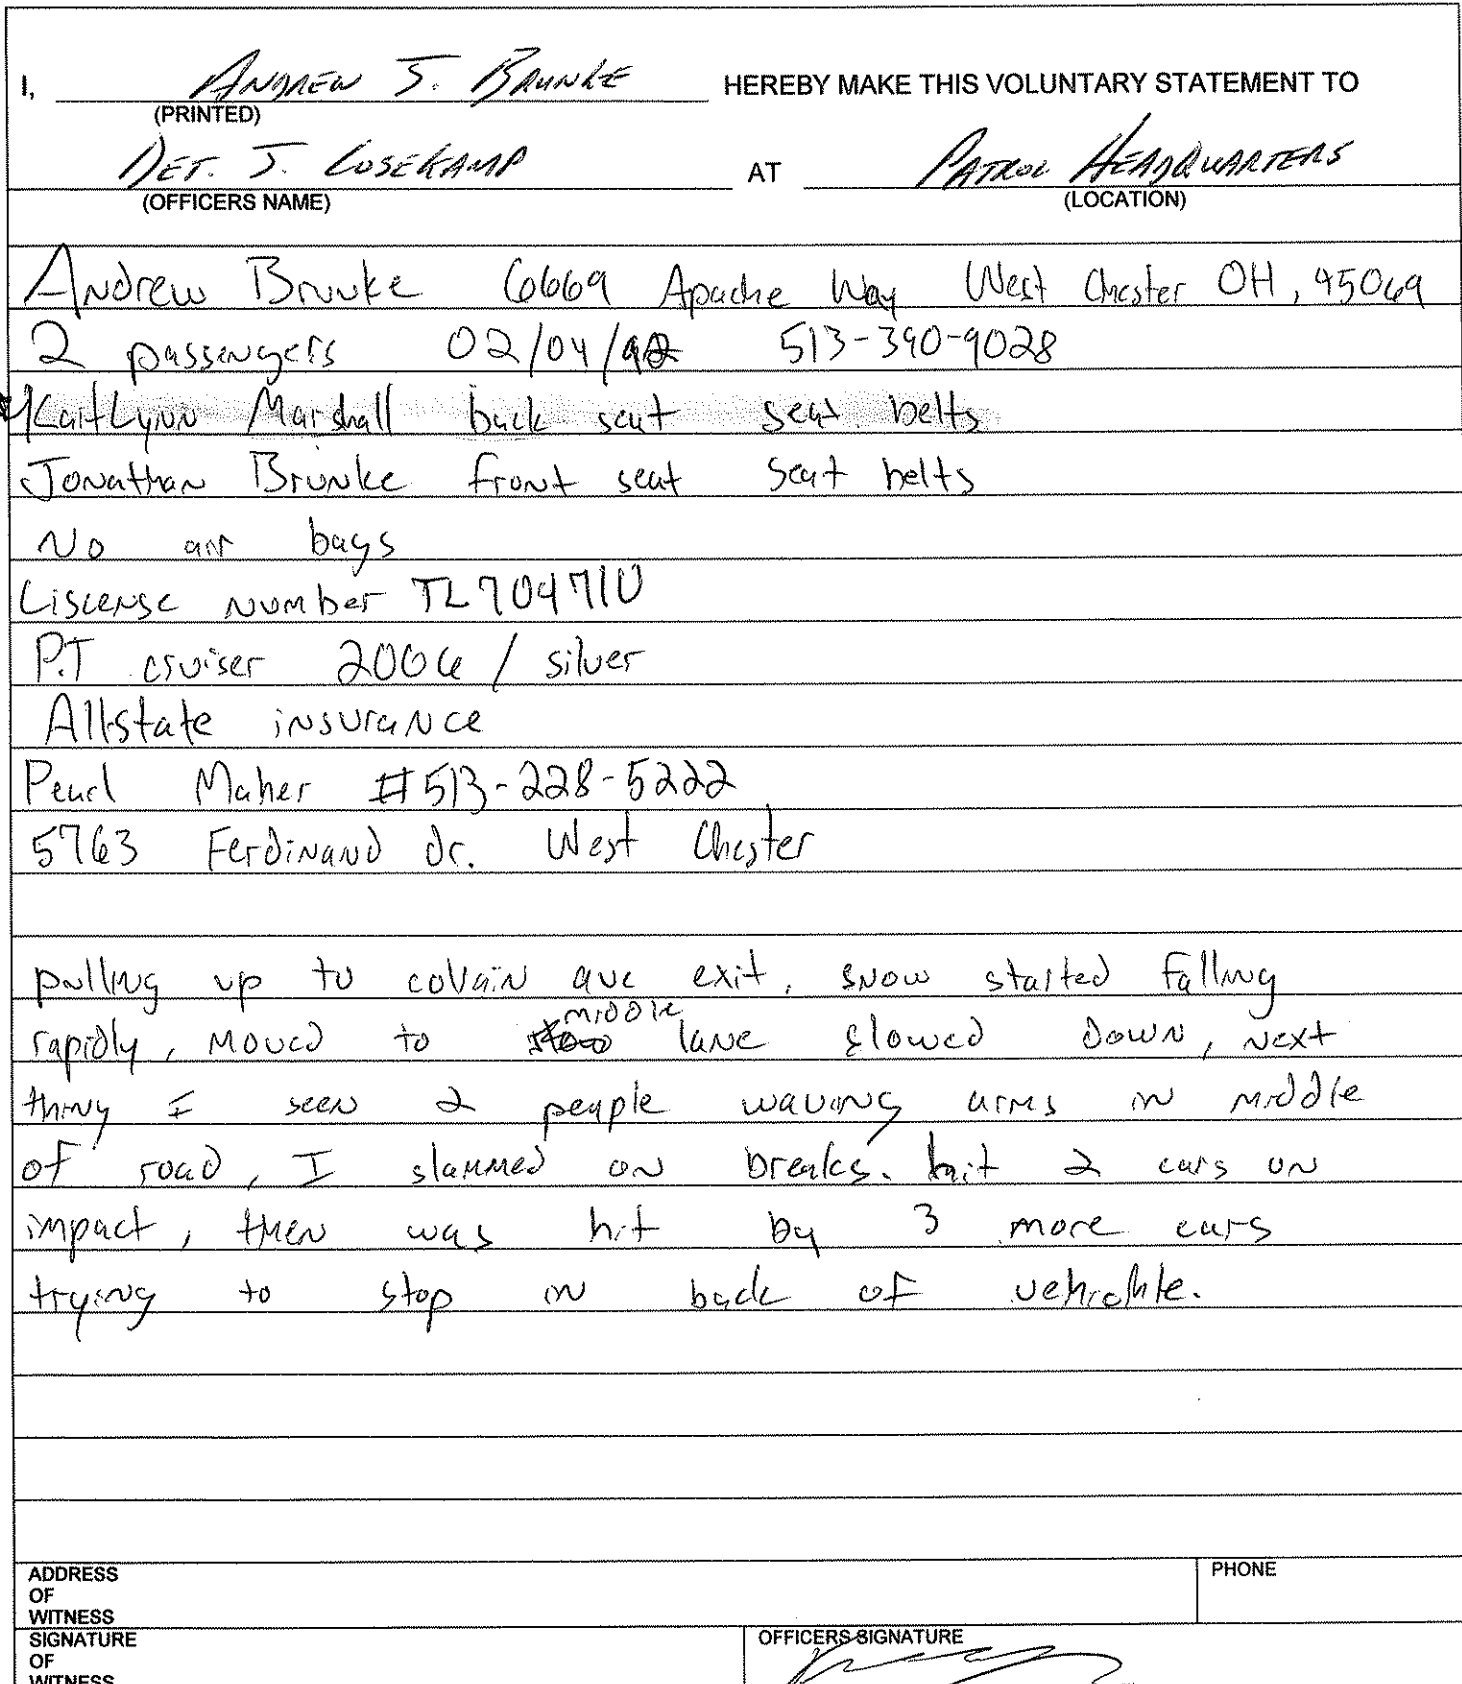 I, ANDREW J. BRUNKE HEREBY MAKE THIS VOLUNTARY STATEMENT TO
(PRINTED)
DET. J. LOSEKAMP AT PATROL HEADQUARTERS
(OFFICERS NAME) (LOCATION)
Andrew Brunke 6669 Apache Way West Chester OH, 45069
2 passengers 02/04/92 513-390-9028
KaitLynn Marshall back seat seat belts
Jonathan Brunke front seat seat belts
No air bags
Liscense number TL704710
P.T cruiser 2006 / silver
Allstate insurance
Pearl Maher #513-228-5222
5763 Ferdinand dr. West Chester
pulling up to colvain ave exit, snow started falling
middle
rapidly, moved to lane slowed down, next
thing I seen 2 people waving arms in middle
of road, I slammed on breaks. hit 2 cars on
impact, then was hit by 3 more cars
trying to stop in back of vehichle.
ADDRESS PHONE
OF
WITNESS
SIGNATURE OFFICERS SIGNATURE
OF
WITNESS